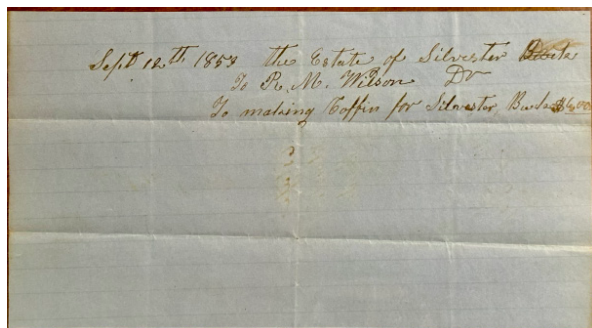 Sept 12th 1858 the Estate of Silvester
To R. M. Wilson Dr
To making Coffin for Silvester,